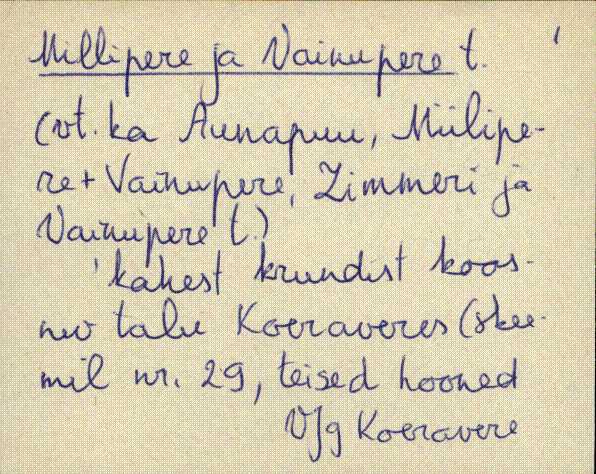 Millipere ja Vainupere t.
(vt. ka Aunapuu, Miilipe-
re + Vainupere, Zimmeri ja
Vainupere t.)
'kahest krundist koos-
nev talu Koeraveres (skee-
mil nr. 29, teised hooned
V/g Koeravere